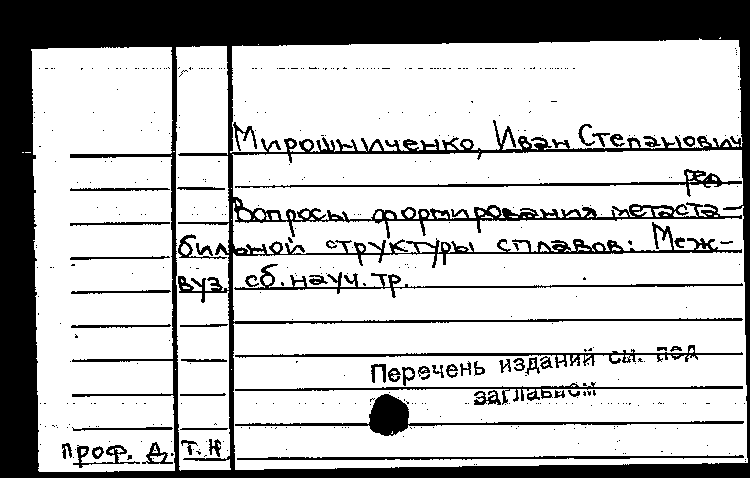 Мирошниченко, Иван Степанович
ред
Вопросы формирования метаста-
бильной структуры сплавов: Меж-
вуз. сб. науч. тр.
Перечень изданий см. под
заглавием
проф. д. т. н